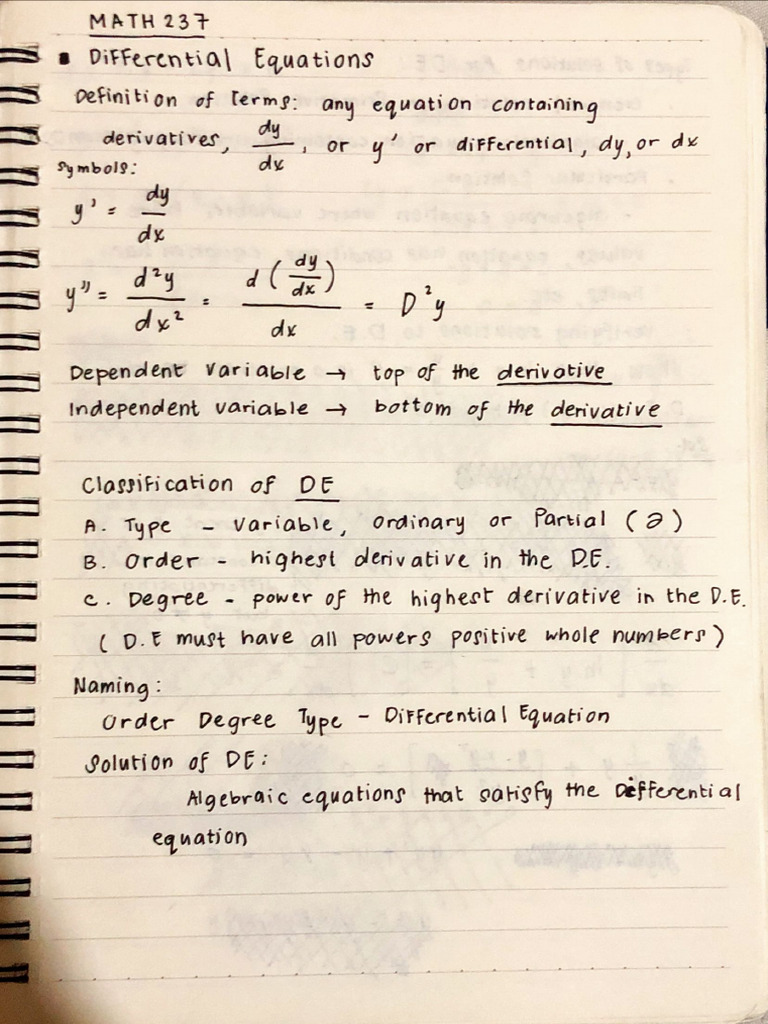 MATH 237
▪ Differential Equations
Definition of Terms: any equation containing
derivatives, dy/dx, or y' or differential, dy, or dx
Symbols:
y' = dy/dx
y'' = d²y/dx² = d(dy/dx)/dx = D²y
Dependent variable → top of the derivative
Independent variable → bottom of the derivative
Classification of DE
A. Type - variable, ordinary or Partial (∂)
B. Order - highest derivative in the D.E.
C. Degree - power of the highest derivative in the D.E.
( D.E must have all powers positive whole numbers)
Naming:
Order Degree Type - Differential Equation
Solution of DE:
Algebraic equations that satisfy the Differential
equation